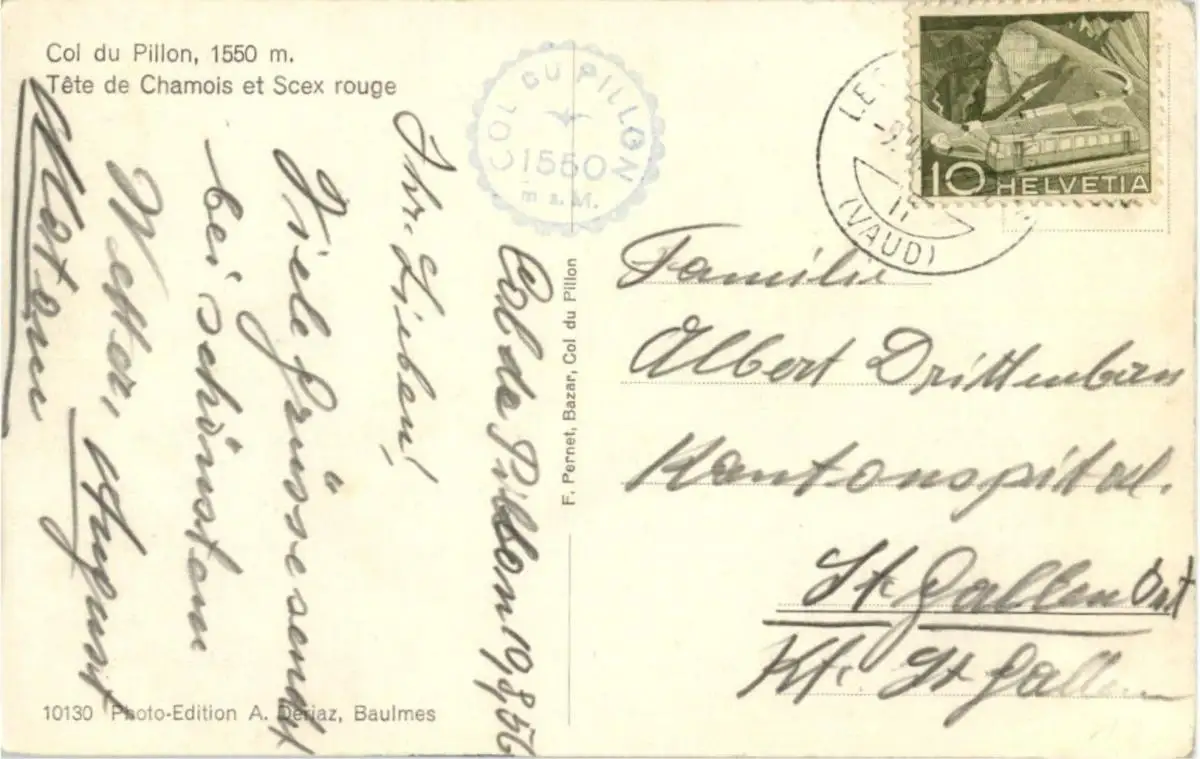 Col du Pillon, 1550 m.
Tête de Chamois et Scex rouge
COL DU PILLON
1550
m s.M.
Col de Pillon 19,8,56
Ihr Lieben!
Viele Grüsse sendet
bei schönstem
Wetter, August
10130 Photo-Edition A. Deriaz, Baulmes
F. Pernet, Bazar, Col du Pillon
LES
(VAUD)
10 HELVETIA
Familie
Albert Drittenbass
Kantonspital.
St. Gallen Ost
Kt. St Gallen